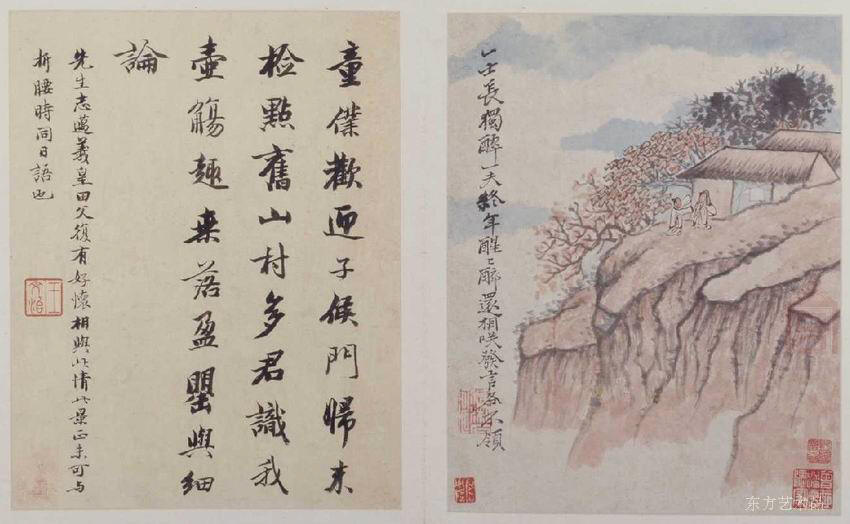 一士長獨醉一夫終年醒〻醉還相咲發言各不領
童僕歡迎子候門歸来
檢點舊山村多君識我
壺觴趣来落盈罌與細
論
先生志邁羲皇田父復有好懷相與以情此景正未可与
折腰時同日語也
王文治
东方艺术品